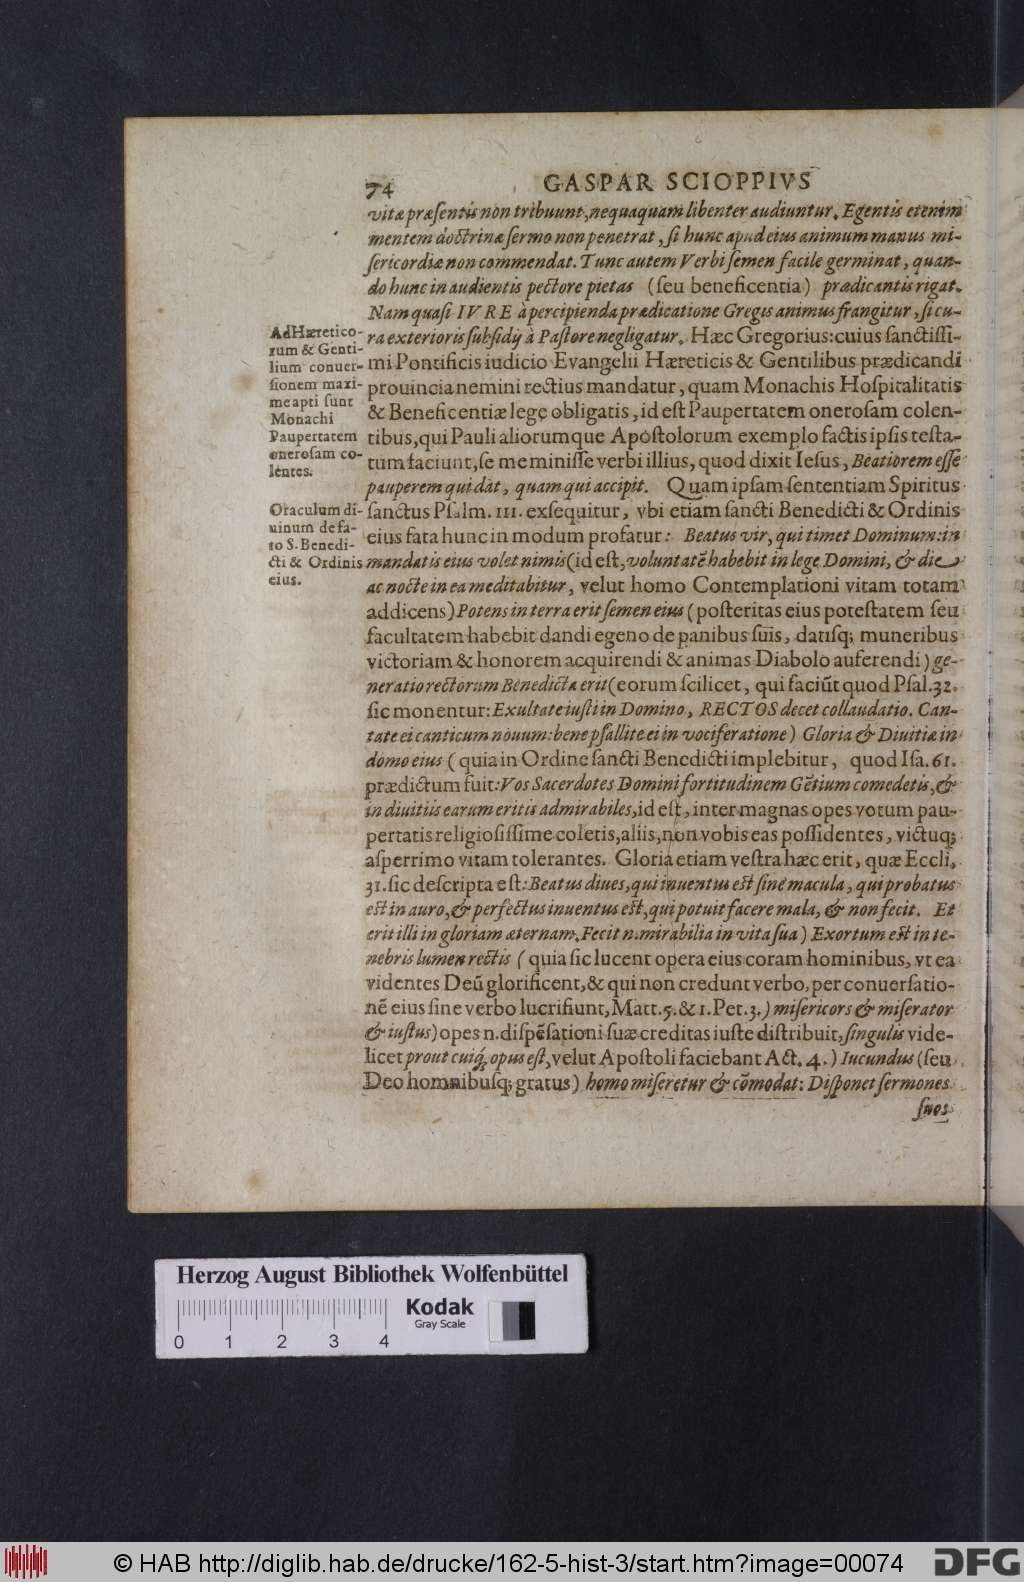 74 GASPAR SCIOPPIVS
vitæ præſentis non tribuunt, nequaquam libenter audiuntur. Egentis etenim
mentem doctrinæ ſermo non penetrat, ſi hunc apud eius animum manus mi-
ſericordiæ non commendat. Tunc autem Verbi ſemen facile germinat, quan-
do hunc in audientis pectore pietas (ſeu beneficentia) prædicantis rigat.
Nam quaſi IVRE à percipienda prædicatione Gregis animus frangitur, ſi cu-
ra exterioris ſubſidij à Paſtore negligatur. Hæc Gregorius: cuius ſanctiſſi-
mi Pontificis iudicio Evangelii Hæreticis & Gentilibus prædicandi
prouincia nemini rectius mandatur, quam Monachis Hoſpitalitatis
& Beneficentiæ lege obligatis, id eſt Paupertatem oneroſam colen-
tibus, qui Pauli aliorumque Apoſtolorum exemplo factis ipſis teſta-
tum faciunt, ſe meminiſſe verbi illius, quod dixit Ieſus, Beatiorem eſſe
pauperem qui dat, quam qui accipit. Quam ipſam ſententiam Spiritus
ſanctus Pſalm. 111. exſequitur, vbi etiam ſancti Benedicti & Ordinis
eius fata hunc in modum profatur: Beatus vir, qui timet Dominum: in
mandatis eius volet nimis (id eſt, voluntatē habebit in lege Domini, & die
ac nocte in ea meditabitur, velut homo Contemplationi vitam totam
addicens) Potens in terra erit ſemen eius (poſteritas eius poteſtatem ſeu
facultatem habebit dandi egeno de panibus ſuis, datiſq; muneribus
victoriam & honorem acquirendi & animas Diabolo auferendi) ge-
neratio rectorum Benedicta erit (eorum ſcilicet, qui faciūt quod Pſal. 32.
ſic monentur: Exultate iuſti in Domino, RECTOS decet collaudatio. Can-
tate ei canticum nouum: bene pſallite ei in vociferatione) Gloria & Diuitiæ in
domo eius (quia in Ordine ſancti Benedicti implebitur, quod Iſa. 61.
prædictum fuit: Vos Sacerdotes Domini fortitudinem Gētium comedetis, &
in diuitiis earum eritis admirabiles, id eſt, inter magnas opes votum pau-
pertatis religioſiſſime coletis, aliis, non vobis eas poſſidentes, victuq;
aſperrimo vitam tolerantes. Gloria etiam veſtra hæc erit, quæ Eccli.
31. ſic deſcripta eſt: Beatus diues, qui inuentus eſt ſine macula, qui probatus
eſt in auro, & perfectus inuentus eſt, qui potuit facere mala, & non fecit. Et
erit illi in gloriam æternam. Fecit n. mirabilia in vita ſua) Exortum eſt in te-
nebris lumen rectis (quia ſic lucent opera eius coram hominibus, vt ea
videntes Deū glorificent, & qui non credunt verbo, per conuerſatio-
nē eius ſine verbo lucrifiunt, Matt. 5. & 1. Pet. 3.) miſericors & miſerator
& iuſtus) opes n. diſpēſationi ſuæ creditas iuſte diſtribuit, ſingulis vide-
licet prout cuiq́; opus eſt, velut Apoſtoli faciebant Act. 4.) Iucundus (ſeu
Deo hominibuſq; gratus) homo miſeretur & cōmodat: Diſponet ſermones
ſuos
Ad Hæretico-
rum & Genti-
lium conuer-
ſionem maxi-
me apti ſunt
Monachi
Paupertatem
oneroſam co-
lentes.
Oraculum di-
uinum de fa-
to S. Benedi-
cti & Ordinis
eius.
Herzog August Bibliothek Wolfenbüttel
Kodak
Gray Scale
0 1 2 3 4
© HAB http://diglib.hab.de/drucke/162-5-hist-3/start.htm?image=00074
DFG